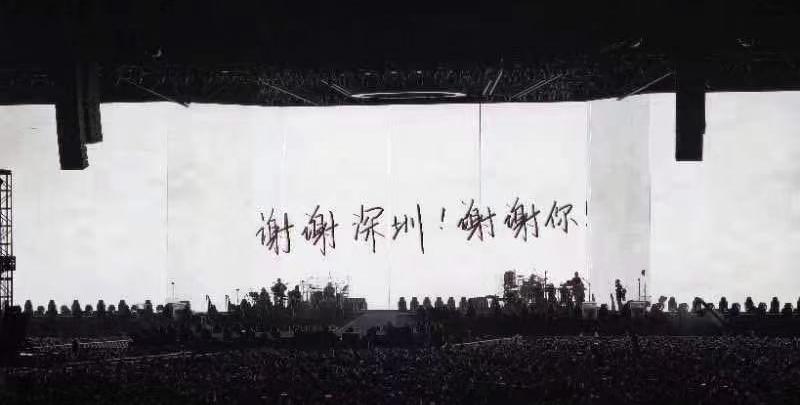 谢谢深圳!谢谢你!